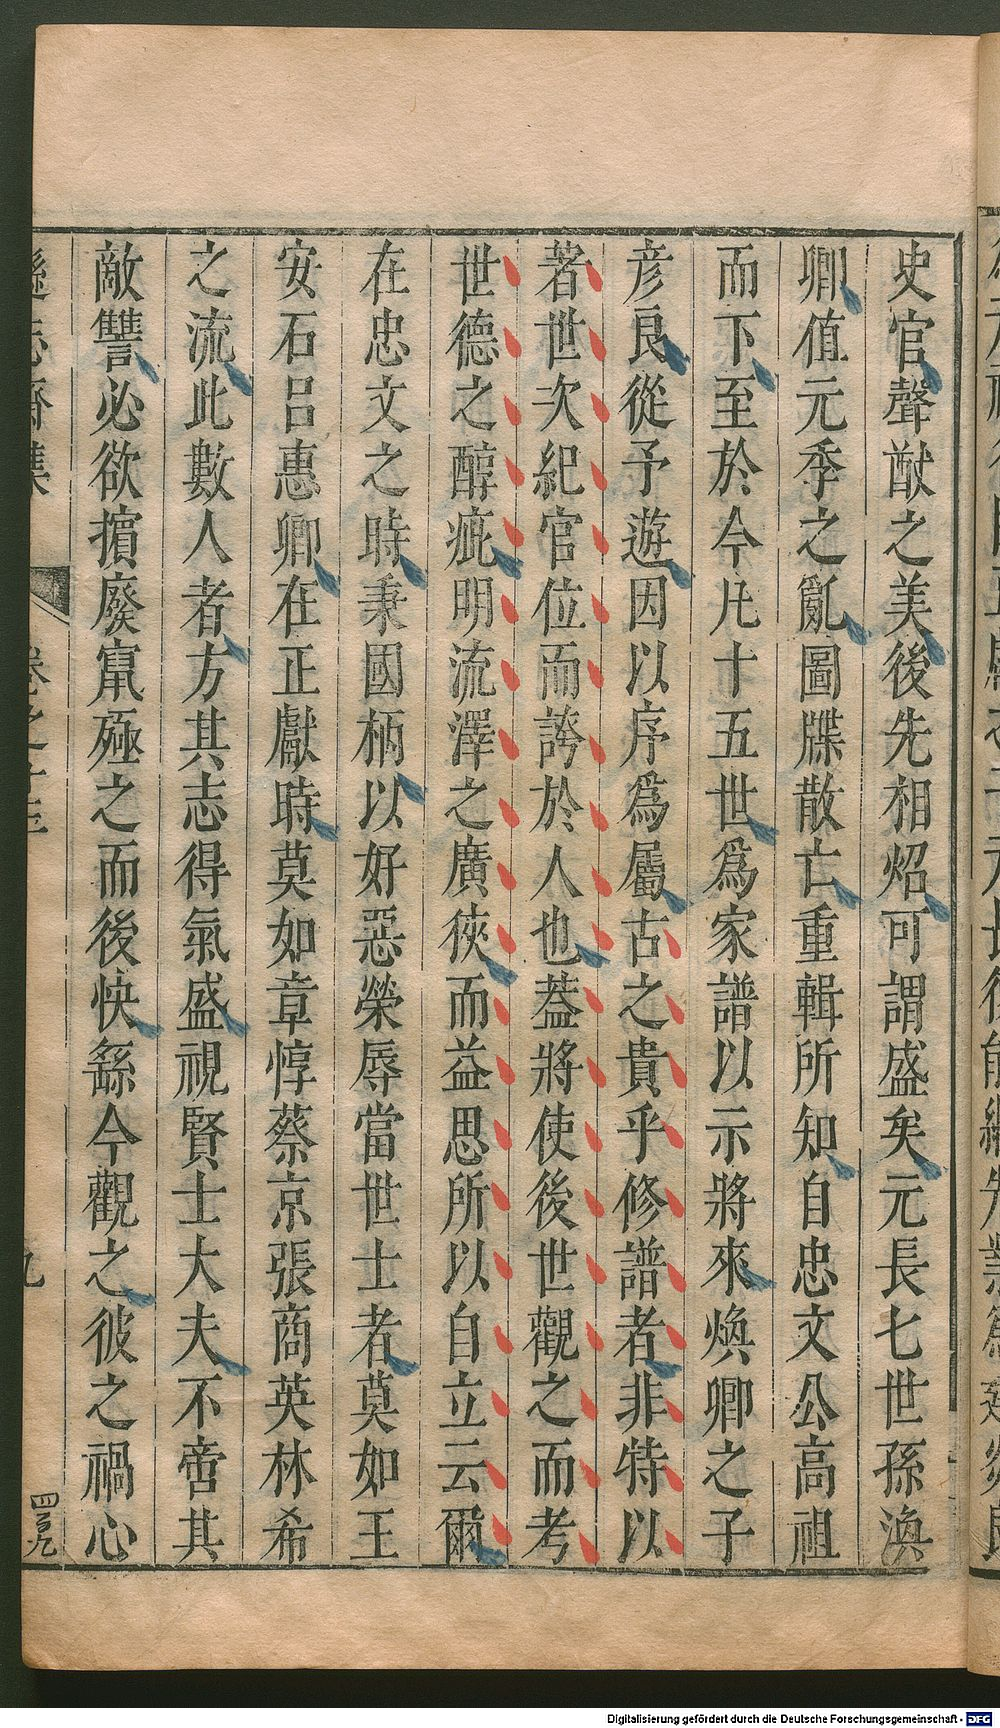 史官聲猷之美後先相炤可謂盛矣元長七世孫渙
卿值元季之亂圖牒散亡重輯所知自忠文公高祖
而下至於今凡十五世爲家譜以示將來煥卿之子
彥良從予遊因以序爲屬古之貴乎修譜者非特以
著世次紀官位而誇於人也蓋將使後世觀之而考
世德之醇疵明流澤之廣狹而益思所以自立云爾
在忠文之時秉國柄以好惡榮辱當世士者莫如王
安石呂惠卿在正獻時莫如章惇蔡京張商英林希
之流此數人者方其志得氣盛視賢士大夫不啻其
敵讐必欲擯廢竄殛之而後快繇今觀之彼之禍心
遜志齋集
卷之十三
九
Digitalisierung gefördert durch die Deutsche Forschungsgemeinschaft - DFG